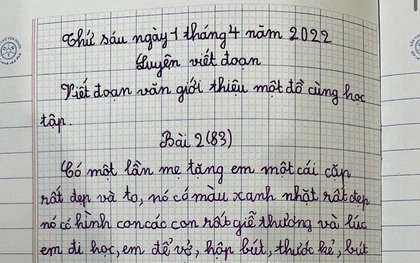 Thứ sáu ngày 1 tháng 4 năm 2022
Luyện viết đoạn
Viết đoạn văn giới thiệu một đồ cùng học
tập.
Bài 2 (83)
Có một lần mẹ tăng em một cái cặp
rất đẹp và to, nó có màu xanh nhạt rất đẹp
nó có hình con các con rất giễ thương và lúc
em đi học, em để vở, hộp bút, thước kẻ, bút